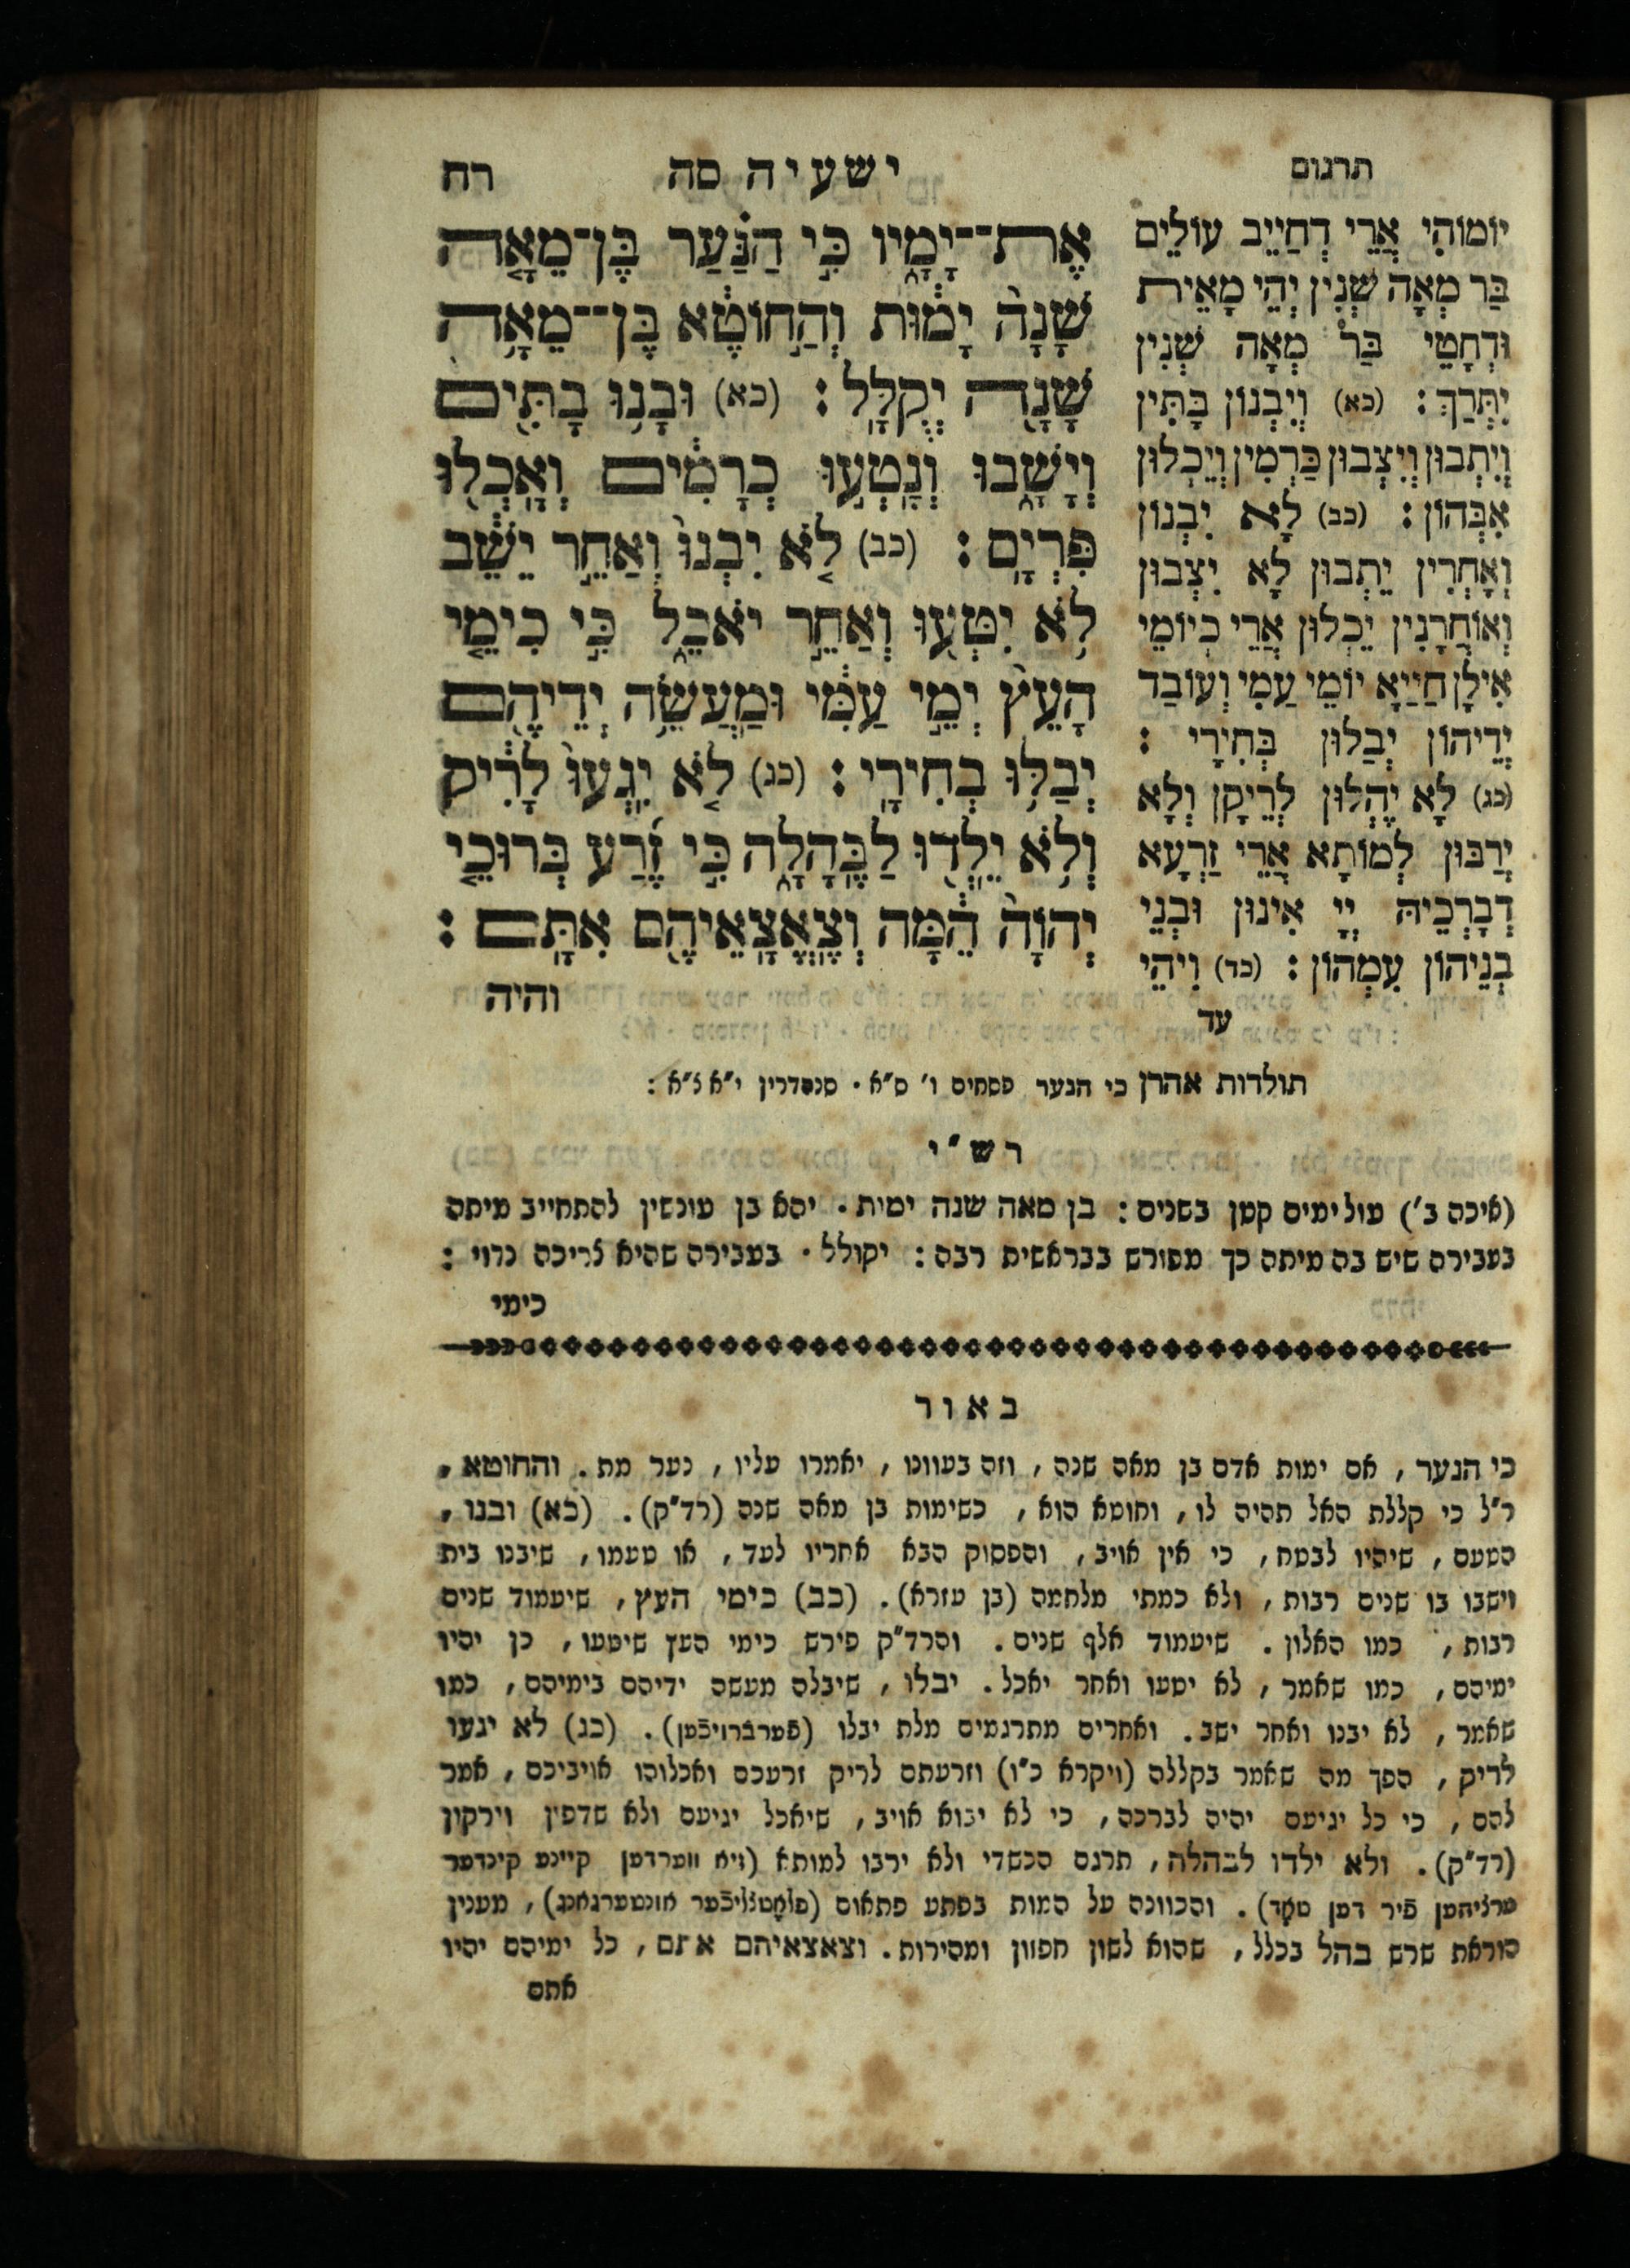 תרגום
ישעיה סה
רח
יוֹמוֹהִי אֲרֵי דְחַיֵיב עוּלֵים
בַּר מְאָה שְׁנִין יְהֵי מָאֵית
וּדְחָטֵי בַּר מְאָה שְׁנִין
יִתְּרַךְ : (כא) וְיִבְנוּן בָּתִּין
וְיִתְבוּן וְיִצְבוּן כַּרְמִין וְיֵכְלוּן
אִבְּהוֹן : (כב) לָא יִבְנוּן
וְאָחֳרִין יֵתְבוּן לָא יִצְבוּן
וְאוֹחֳרָנִין יֵכְלוּן אֲרֵי כְיוֹמֵי
אִילָן חַיַיָא יוֹמֵי עַמִי וְעוֹבַד
יְדֵיהוֹן יְבַלוּן בְּחִירָי :
(כג) לָא יֶהֱלוּן לְרֵיקָן וְלָא
יְרַבּוּן לְמוֹתָא אֲרֵי זַרְעָא
דְבָרְכֵיהּ יְיָ אִינוּן וּבְנֵי
בְנֵיהוֹן עִמְהוֹן : (כד) וִיהֵי
עד
אֶת־־יָמָ֑יו כִּ֣י הַנַּ֗עַר בֶּן־מֵאָ֤ה
שָׁנָה֙ יָמ֔וּת וְהַ֣חוֹטֶ֔א בֶּן־־מֵאָ֥ה
שָׁנָ֖ה יְקֻלָּֽל : (כא) וּבָנ֥וּ בָתִּ֖ים
וְיָשָׁ֑בוּ וְנָטְע֣וּ כְרָמִ֔ים וְאָכְל֖וּ
פִּרְיָֽם : (כב) לֹ֤א יִבְנוּ֙ וְאַחֵ֣ר יֵשֵׁ֔ב
לֹ֥א יִטְּע֖וּ וְאַחֵ֣ר יֹאכֵ֑ל כִּ֣י כִימֵ֤י
הָעֵץ֙ יְמֵ֣י עַמִּ֔י וּמַעֲשֵׂ֥ה יְדֵיהֶ֖ם
יְבַלּ֥וּ בְחִירָֽי : (כג) לֹ֤א יִֽגְעוּ֙ לָרִ֔יק
וְלֹ֥א יֵלְד֖וּ לַבֶּהָלָ֑ה כִּ֣י זֶ֜רַע בְּרוּכֵ֤י
יְהוָה֙ הֵ֔מָּה וְצֶאֱצָאֵיהֶ֖ם אִתָּֽם :
והיה
תולדות אהרן כי הנער פסחים ו׳ ס״א . סנהדרין י״א צ״א :
רש״י
(איכה ב׳) עולימים קטן בשנים : בן מאה שנה ימות . יהא בן עונשין להתחייב מיתה
בעבירה שיש בה מיתה כך מפורש בבראשית רבה : יקולל . בעבירה שהיא צריכה נדוי :
כימי
באור
כי הנער , אם ימות אדם בן מאה שנה , וזה בעוונו , יאמרו עליו , נער מת . והחוטא ,
ר״ל כי קללת האל תהיה לו , וחוטא הוא , כשימות בן מאה שנה (רד״ק) . (כא) ובנו ,
הטעם , שיהיו לבטח , כי אין אויב , והפסוק הבא אחריו לעד , או טעמו , שיבנו בית
וישבו בו שנים רבות , ולא כמתי מלחמה (בן עזרא) . (כב) כימי העץ , שיעמוד שנים
רבות , כמו האלון . שיעמוד אלף שנים . והרד״ק פירש כימי העץ שיטעו , כן יהיו
ימיהם , כמו שאמר , לא יטעו ואחר יאכל . יבלו , שיבלה מעשה ידיהם בימיהם , כמו
שאמר , לא יבנו ואחר ישב . ואחרים מתרגמים מלת יבלו (פֿערברויכֿען) . (כג) לא יגעו
לריק , הפך מה שאמר בקללה (ויקרא כ״ו) וזרעתם לריק זרעכם ואכלוהו אויביכם , אמר
להם , כי כל יגיעם יהיה לברכה , כי לא יבוא אויב , שיאכל יגיעם ולא שדפין וירקון
(רד״ק) . ולא ילדו לבהלה , תרגם הכשדי ולא ירבו למותא (זיא ווערדען קיינע קינדער
ערציהען פֿיר דען טאָד) . והכוונה על המות בפתע פתאום (פלאָטצליכֿער אונטערגאנג) , מענין
הוראת שרש בהל בכלל , שהוא לשון חפזון ומהירות . וצאצאיהם אתם , כל ימיהם יהיו
אתם